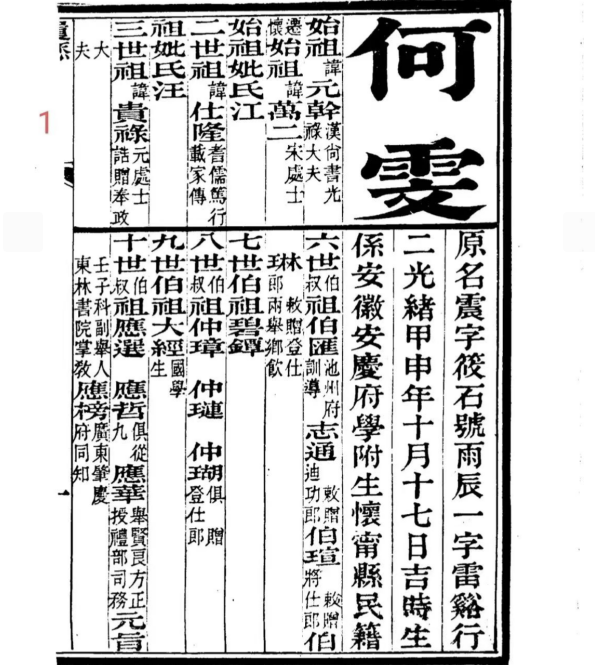 何雯
原名震字筱石號雨辰一字雷谿行
二光緒甲申年十月十七日吉時生
係安徽安慶府學附生懷甯縣民籍
始祖諱元幹漢尚書光祿大夫
遷懷始祖諱萬二宋處士
始祖妣氏江
二世祖諱仕隆耆儒篤行載家傳
祖妣氏汪
三世祖諱貴祿元處士誥贈奉政
大夫
六世伯叔祖伯匯池州府訓導 志通敕贈迪功郎 伯瑄敕贈將仕郎 伯
敕贈登仕郎兩舉鄉飲
七世伯祖碧鐔
八世伯叔祖仲璋 仲璉 仲瑚俱贈登仕郎
九世伯祖大經國學生
十世伯叔祖應選 應哲俱從九 應華舉賢良方正授禮部司務 元旨
壬子科副舉人東林書院掌教 應榜廣東肇慶府同知
一
1